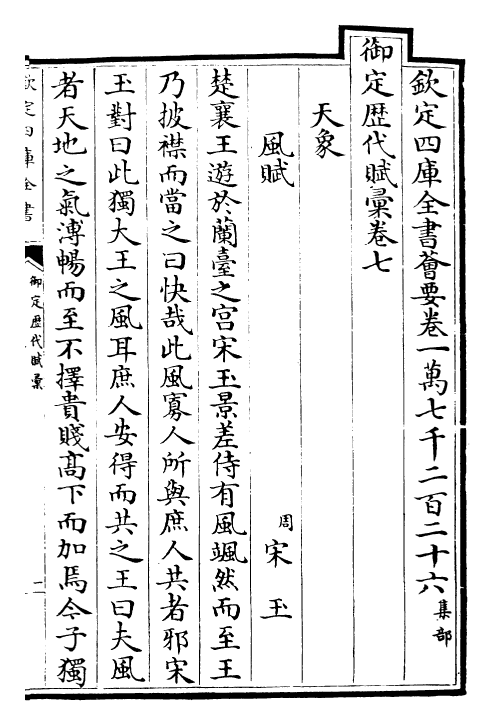 欽定四庫全書薈要卷一萬七千二百二十六集部
御定歴代賦彙卷七
天象
風賦
周宋玉
楚襄王遊於蘭臺之宫宋玉景差侍有風颯然而至王
乃披襟而當之曰快哉此風寡人所與庶人共者邪宋
玉對曰此獨大王之風耳庶人安得而共之王曰夫風
者天地之氣溥暢而至不擇貴賤髙下而加焉今子獨
欽定四庫全書
御定歴代賦彙